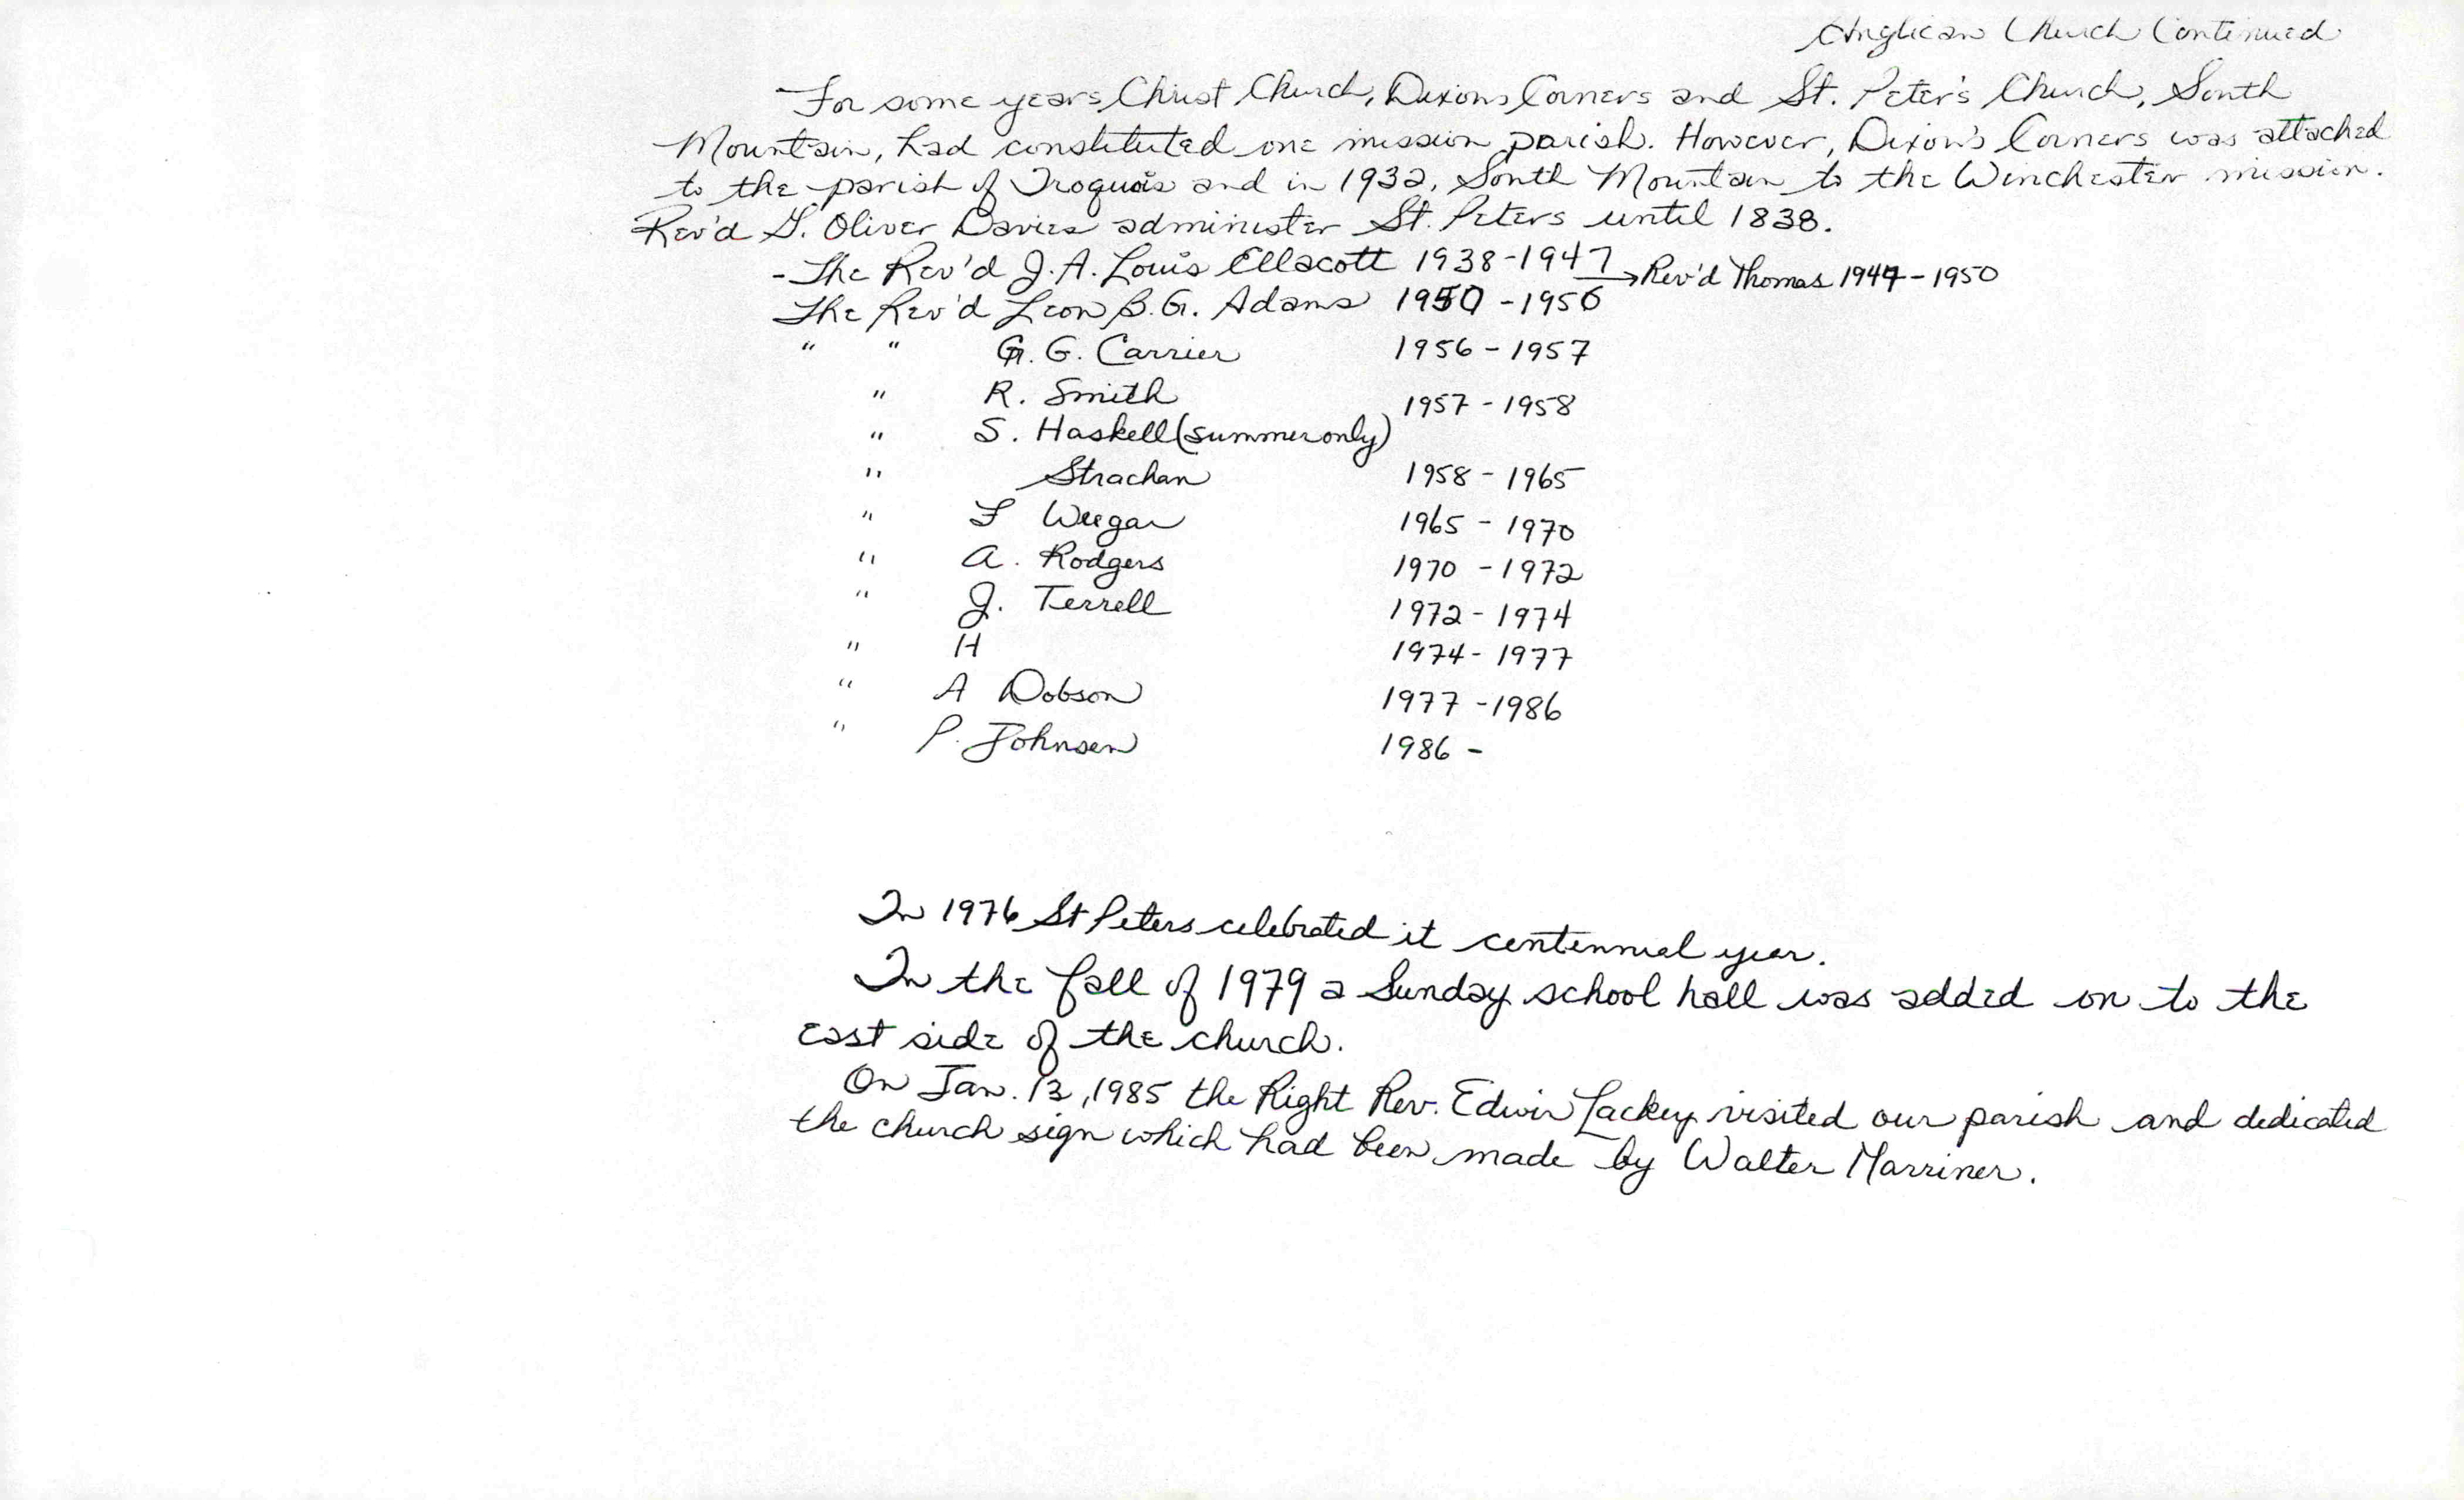 Anglican Church Continued
For some years Christ Church, Dixons Corners and St. Peter's Church, South
Mountain, had constituted one mission parish. However, Dixon's Corners was attached
to the parish of Iroquois and in 1932, South Mountain to the Winchester mission.
Rev'd G. Oliver Davies administer St. Peters until 1838.
- The Rev'd J.A. Louis Ellacott 1938-1947 → Rev'd Thomas 1947-1950
The Rev'd Leon B.G. Adams 1950-1956
" " G.G. Carrier 1956-1957
" R. Smith 1957-1958
" S. Haskell (summer only)
" Strachan 1958-1965
" F Weegar 1965-1970
" A. Rodgers 1970-1972
" J. Terrell 1972-1974
" H 1974-1977
" A Dobson 1977-1986
" P. Johnson 1986-
In 1976 St Peters celebrated it centennial year.
In the fall of 1979 a Sunday school hall was added on to the
east side of the church.
On Jan. 13, 1985 the Right Rev. Edwin Lackey visited our parish and dedicated
the church sign which had been made by Walter Marriner.